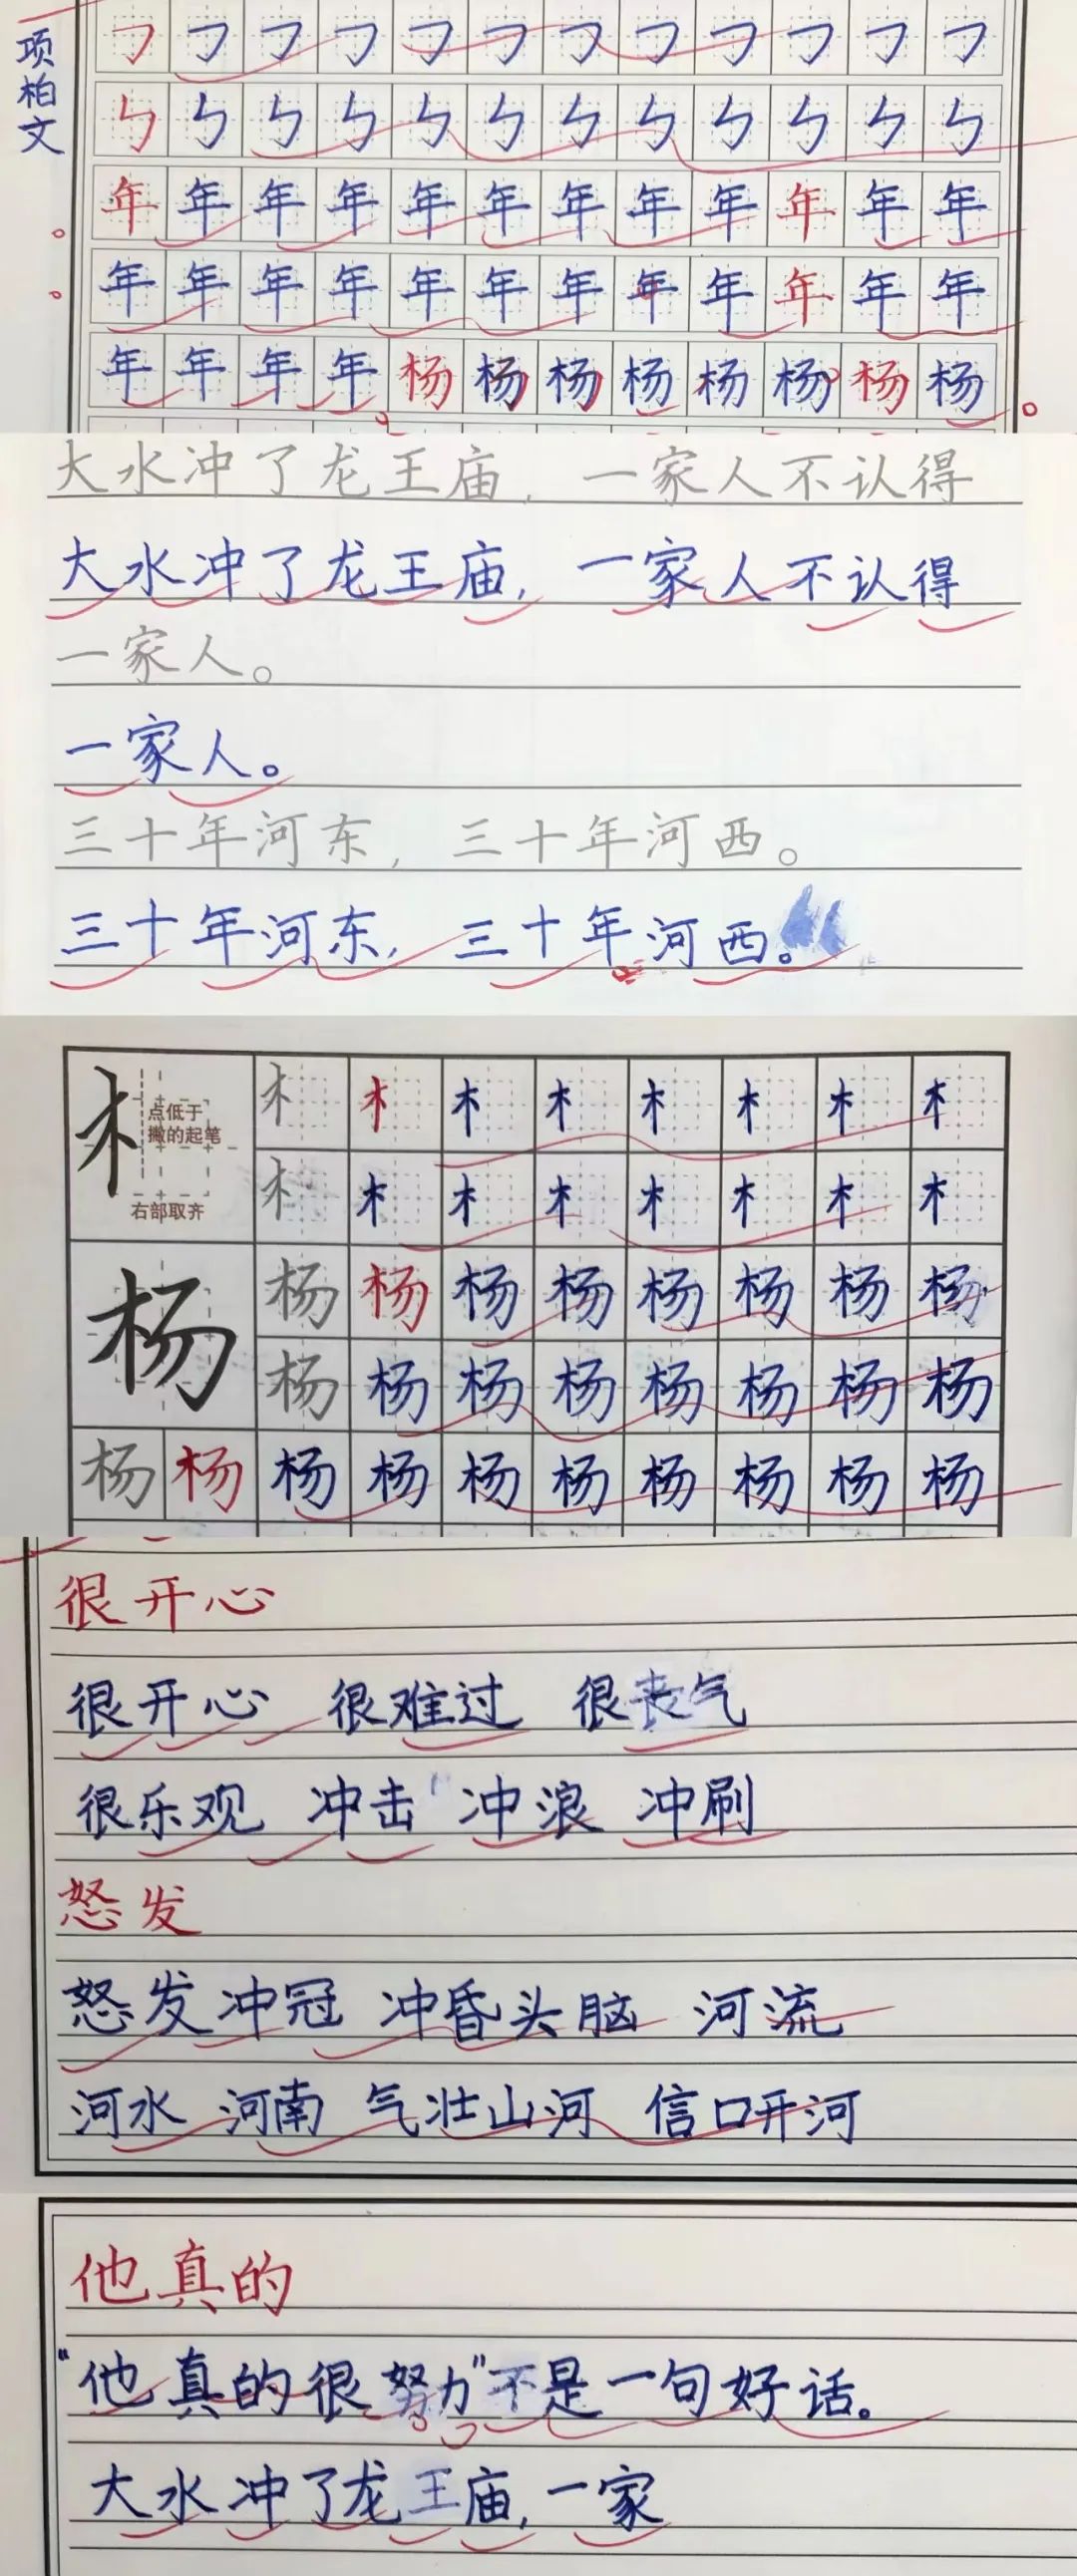 项柏文
㇆ ㇆ ㇆ ㇆ ㇆ ㇆ ㇆ ㇆ ㇆ ㇆ ㇆ ㇆
ㄣ ㄣ ㄣ ㄣ ㄣ ㄣ ㄣ ㄣ ㄣ ㄣ ㄣ ㄣ
年 年 年 年 年 年 年 年 年 年 年 年
年 年 年 年 年 年 年 年 年 年 年 年
年 年 年 年 杨 杨 杨 杨 杨 杨 杨 杨
大水冲了龙王庙,一家人不认得
大水冲了龙王庙,一家人不认得
一家人。
一家人。
三十年河东,三十年河西。
三十年河东,三十年河西。
木 点低于撇的起笔 右部取齐
木 木 木 木 木 木 木 木
木 木 木 木 木 木 木 木
杨
杨 杨 杨 杨 杨 杨 杨 杨
杨 杨 杨 杨 杨 杨 杨 杨
杨 杨 杨 杨 杨 杨 杨 杨 杨 杨
很开心
很开心 很难过 很丧气
很乐观 冲击 冲浪 冲刷
怒发
怒发冲冠 冲昏头脑 河流
河水 河南 气壮山河 信口开河
他真的
“他真的很努力”不是一句好话。
大水冲了龙王庙,一家